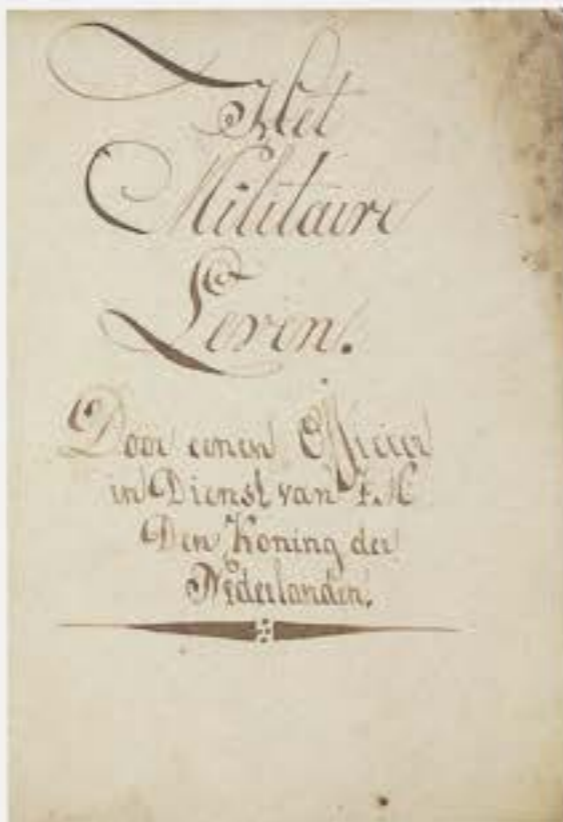 Het
Militaire
Leven.
Door eenen Officier
in Dienst van Z.M.
Den Koning der
Nederlanden.